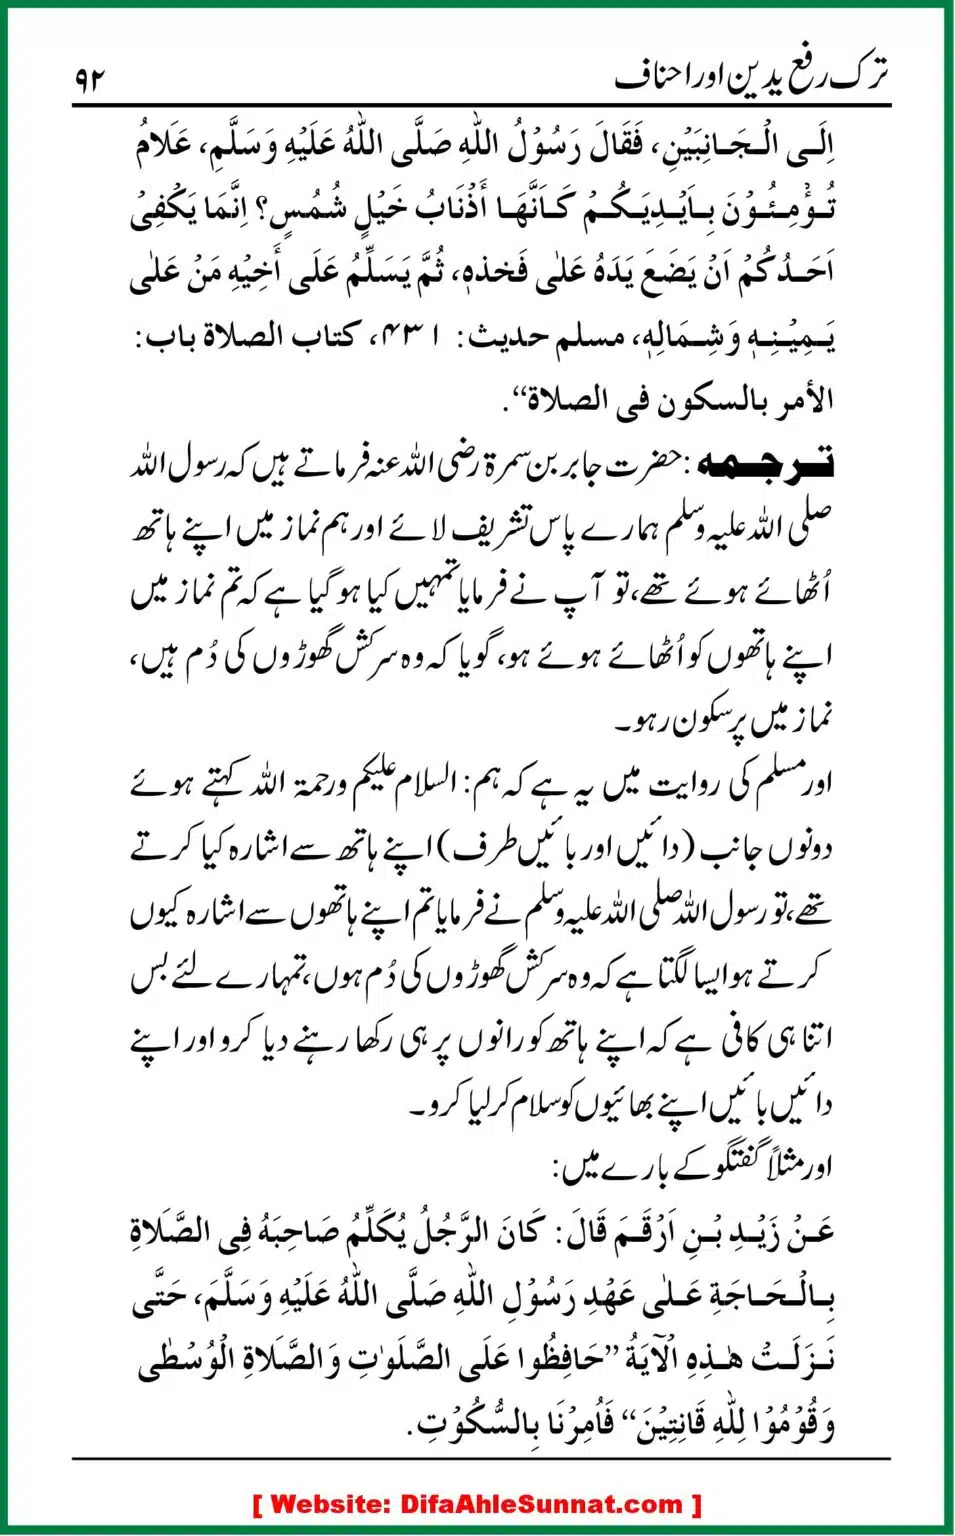 ترک رفع یدین اور احناف ۹۲
اِلَــی الْـجَـانِبَیْنِ، فَقَالَ رَسُوْلُ اللّٰهِ صَلَّی اللّٰهُ عَلَیْهِ وَسَلَّمِ، عَلَامُ
تُـؤْمِـئُـوْنَ بِـاَیْـدِیَـکُـمْ کَـاَنَّهَـا أَذْنَابُ خَیْلٍ شُمُسٍ؟ اِنَّمَا یَکْفِیْ
اَحَـدُکُمْ اَنْ یَضَعَ یَدَهُ عَلٰی فَخذهٖ، ثُمَّ یَسَلِّمُ عَلَی أَخِیْهِ مَنْ عَلٰی
یَـمِیْـنِـهٖ وَشِـمَالِهٖ، مسلم حدیث: ۴۳۱، کتاب الصلاة باب:
الأمر بالسکون فی الصلاة“.
تـرجـمه: حضرت جابر بن سمرۃ رضی اللہ عنہ فرماتے ہیں کہ رسول اللہ
صلی اللہ علیہ وسلم ہمارے پاس تشریف لائے اور ہم نماز میں اپنے ہاتھ
اُٹھائے ہوئے تھے، تو آپ نے فرمایا تمہیں کیا ہو گیا ہے کہ تم نماز میں
اپنے ہاتھوں کو اُٹھائے ہوئے ہو، گویا کہ وہ سرکش گھوڑوں کی دُم ہیں،
نماز میں پرسکون رہو۔
اور مسلم کی روایت میں یہ ہے کہ ہم: السلام علیکم ورحمۃ اللہ کہتے ہوئے
دونوں جانب (دائیں اور بائیں طرف) اپنے ہاتھ سے اشارہ کیا کرتے
تھے، تو رسول اللہ صلی اللہ علیہ وسلم نے فرمایا تم اپنے ہاتھوں سے اشارہ کیوں
کرتے ہو ایسا لگتا ہے کہ وہ سرکش گھوڑوں کی دُم ہوں، تمہارے لئے بس
اتنا ہی کافی ہے کہ اپنے ہاتھ کو رانوں پر ہی رکھا رہنے دیا کرو اور اپنے
دائیں بائیں اپنے بھائیوں کو سلام کر لیا کرو۔
اور مثلاً گفتگو کے بارے میں:
عَـنْ زَیْـدِ بْـنِ اَرْقَـمَ قَالَ: کَانَ الرَّجُلُ یُکَلِّمُ صَاحِبَهُ فِی الصَّلَاةِ
بِـالْـحَـاجَةِ عَـلٰی عَهْدِ رَسُوْلِ اللّٰهِ صَلَّی اللّٰهُ عَلَیْهِ وَسَلَّمَ، حَتَّی
نَـزَلَـتْ هٰـذِهِ الْآیَةُ ”حَافِظُوا عَلَی الصَّلَوٰتِ وَالصَّلَاةِ الْوُسْطٰی
وَقُوْمُوْا لِلّٰهِ قَانِتِیْنَ“ فَاُمِرْنَا بِالسُّکُوْتِ.
[ Website: DifaAhleSunnat.com ]